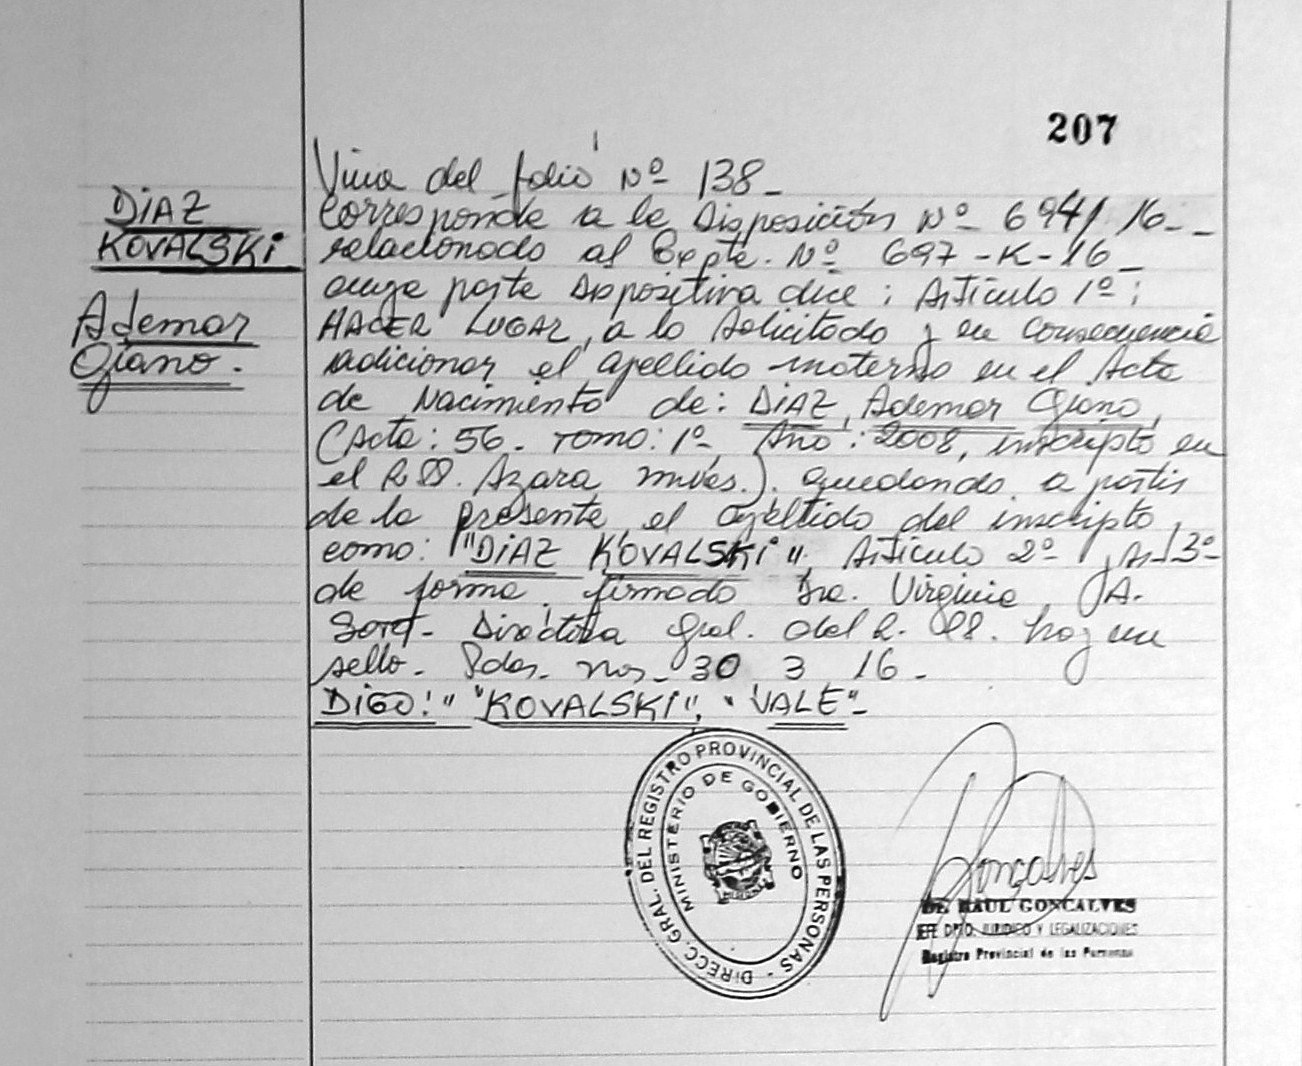 207
DiAZ
KOVALSKi
Ademar
Giano.
Viene del folio Nº 138_
Corresponde a la Disposición Nº 694/16_
relacionado al Expte. Nº 697-K-16_
cuya parte dispositiva dice: Artículo 1º:
HACER LUGAR, a lo solicitado y en consecuencia
adicionar el apellido materno en el Acta
de Nacimiento de: DiAZ, Ademar Giano,
(Acta: 56. Tomo: 1º, Año: 2008, inscripto en
el R Azara Mnes.). quedando a partir
de la presente el apellido del inscripto,
como: "DiAZ KOVALSKi", Artículo 2º, Art 3º
de forma. firmado Dra. Virginia A.
Directora Gral. del R. hay un
sello. Pdas. Mns. 30 3 16_
DiGO: "KOVALSKi", "VALE"_
DIRECC. GRAL. DEL REGISTRO PROVINCIAL DE LAS PERSONAS -
MINISTERIO DE GOBIERNO
Gonçalves
RAUL GONCALVES
JEFE DPTO. JURIDICO Y LEGALIZACIONES
Registro Provincial de las Personas